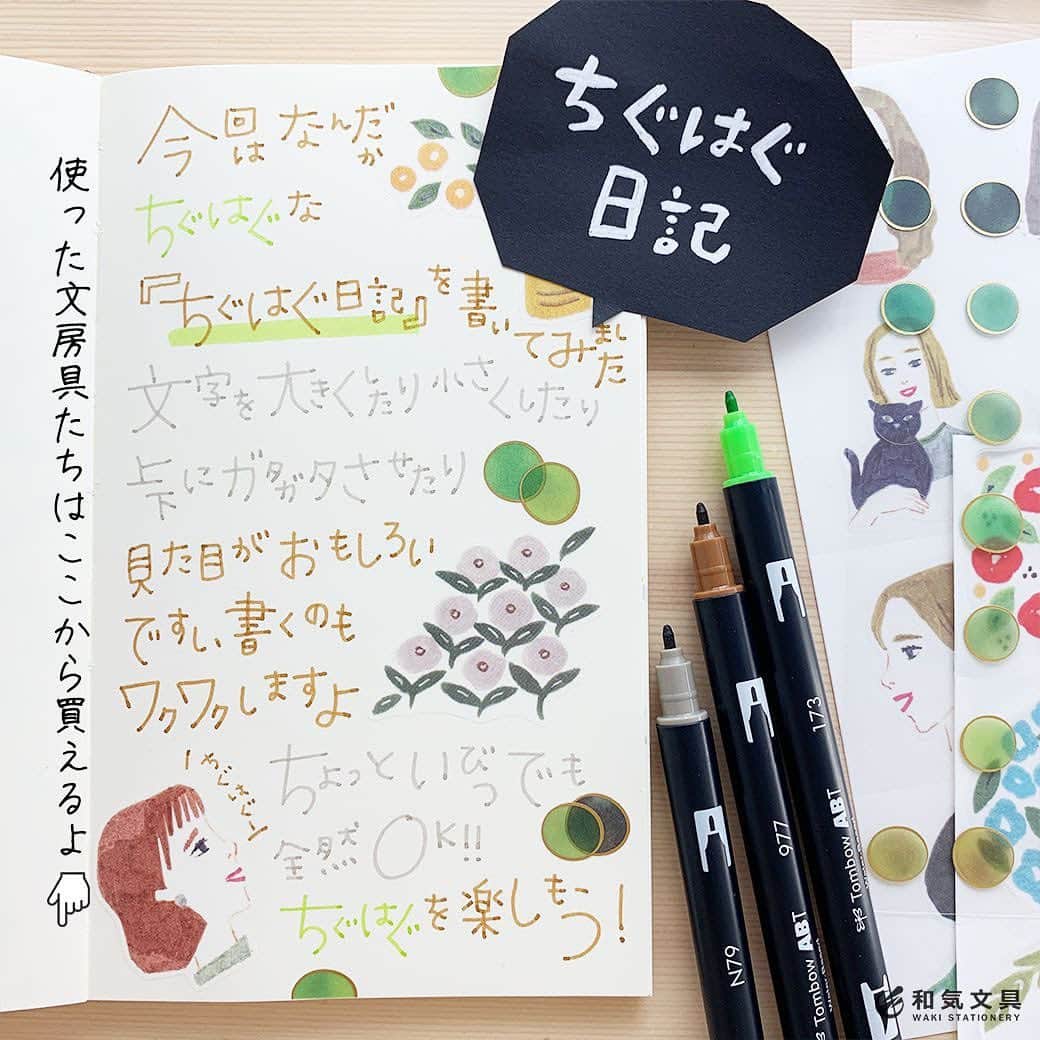 ちぐはぐ
日記
今回はなんだか
ちぐはぐな
『ちぐはぐ日記』を書いてみました
文字を大きくしたり小さくしたり
上下にガタガタさせたり
見た目がおもしろい
ですし書くのも
ワクワクしますよ
ちょっといびつでも
全然OK!!
ちぐはぐを楽しもう!
使った文房具たちはここから買えるよ
173
977
N79
Tombow ABT
Tombow ABT
和気文具
WAKI STATIONERY